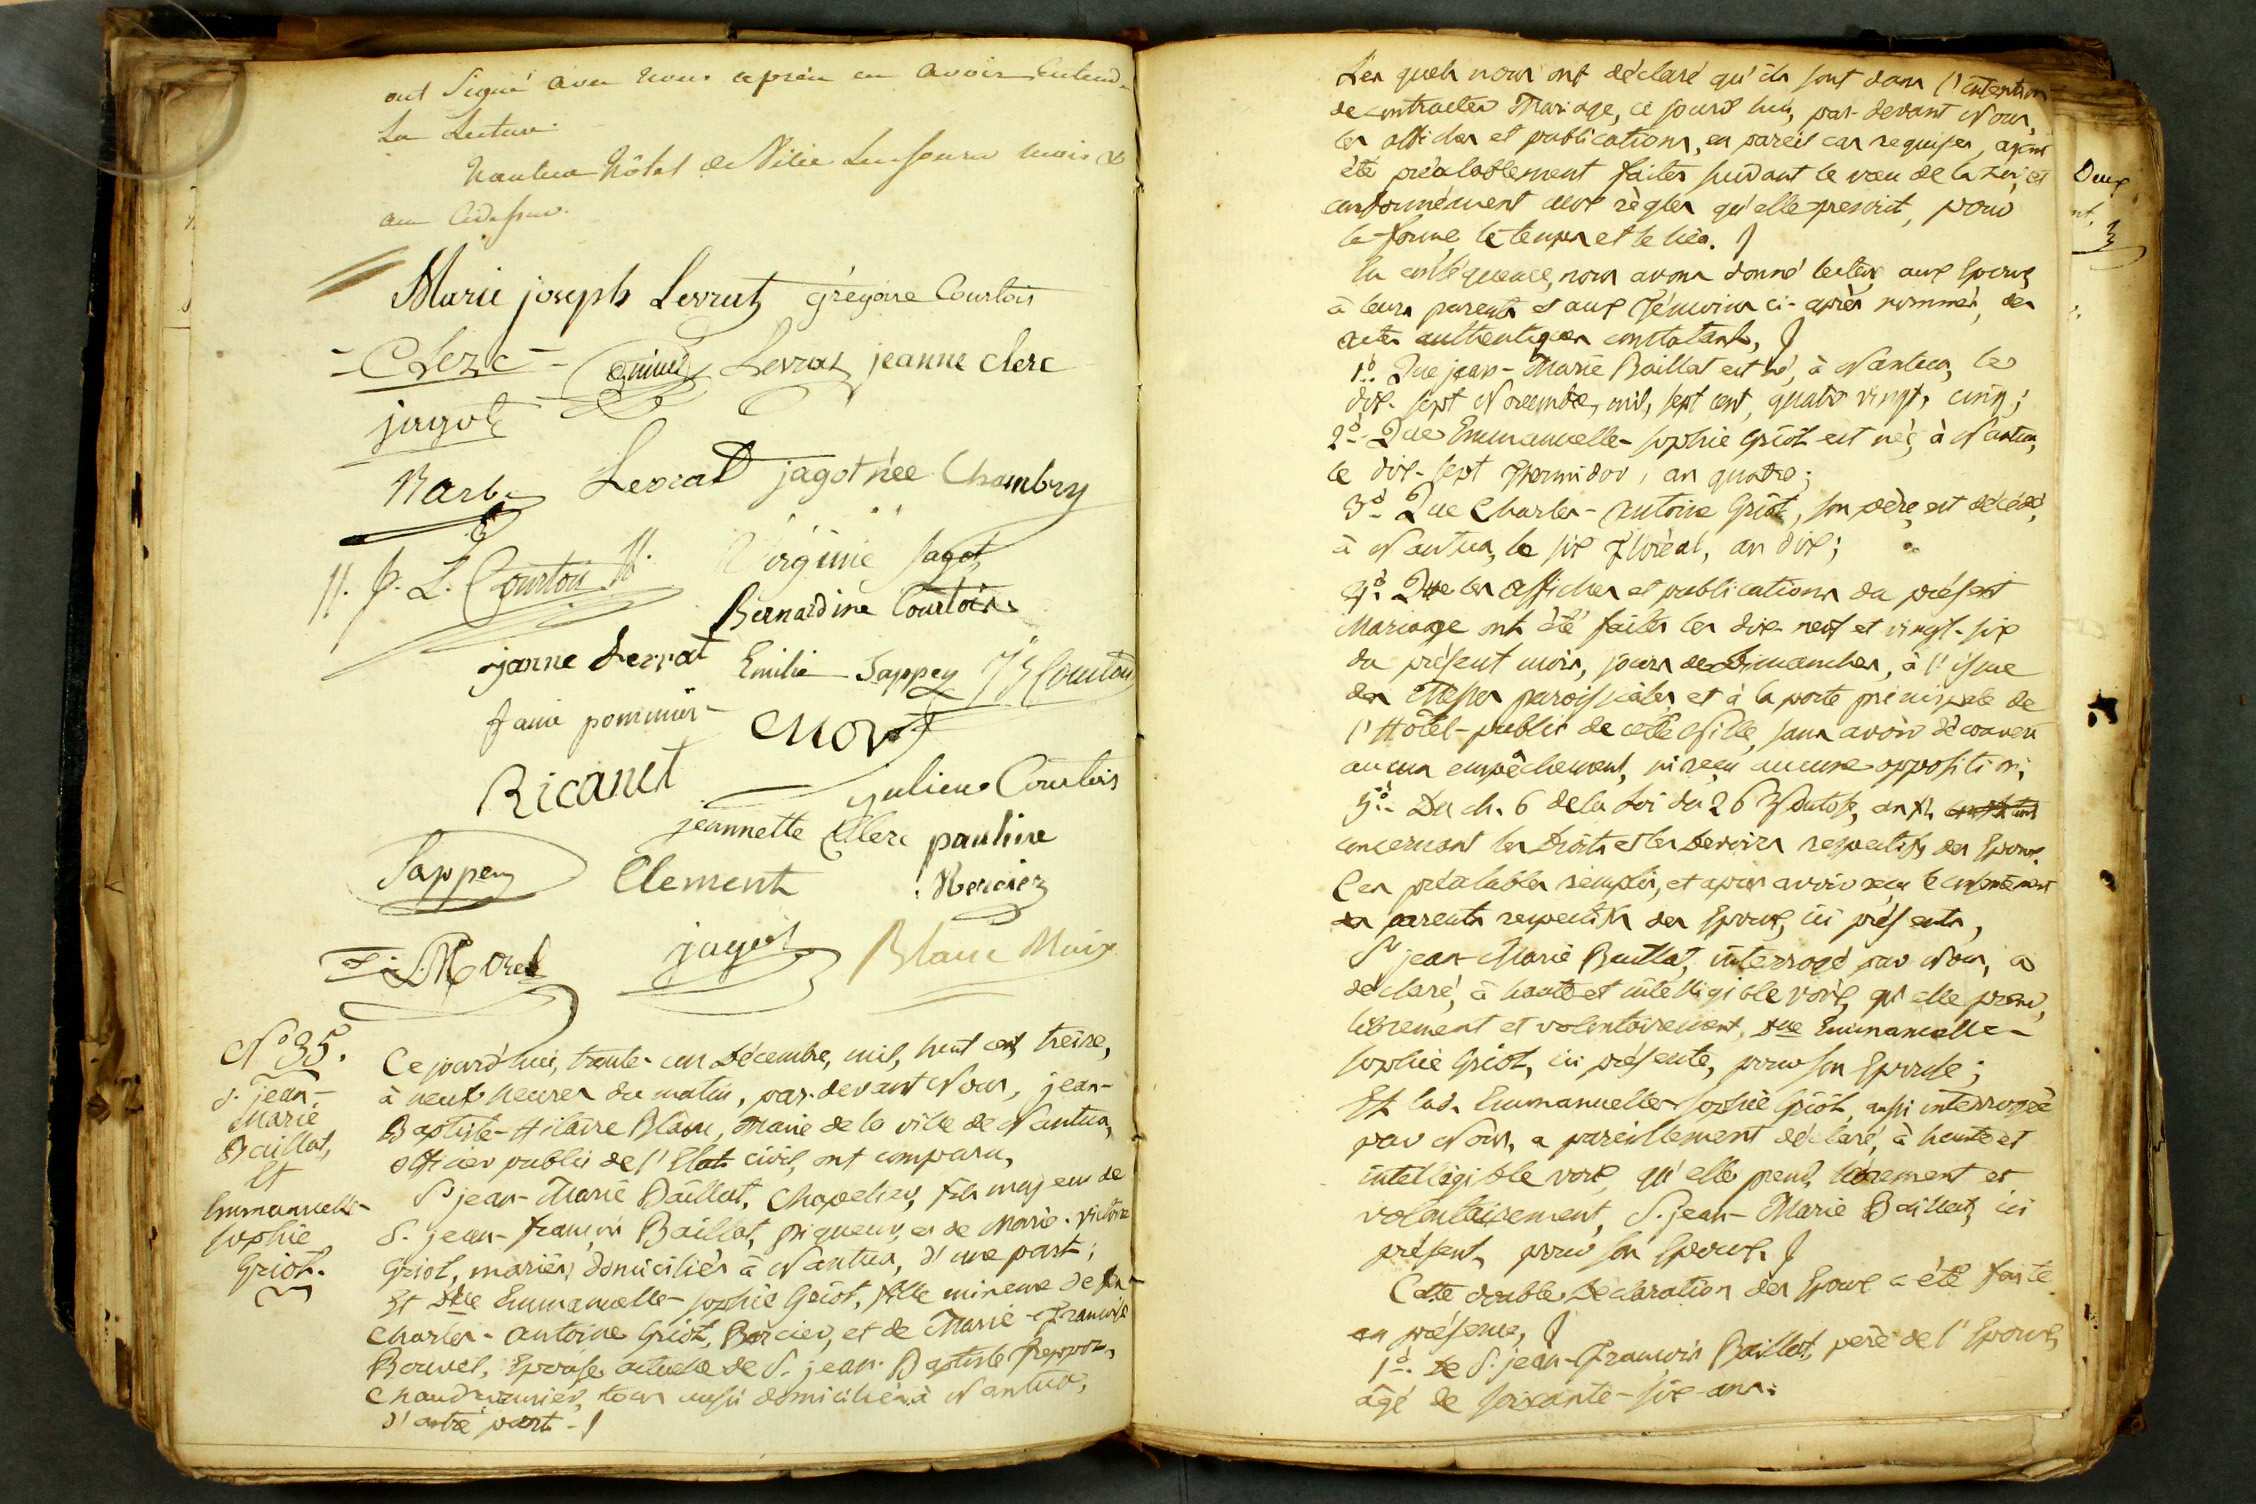 ont signé avec nous après en avoir Entendu
La Lecture.
Nantua Hôtel de Ville Les jour mois &
an Cidessus.
Marie joseph Levrat grégoire Courtois
- CLerc - Levrat jeanne clerc
jagot
Levrat jagot née Chambry
J. L. Courtois Virginie Jagot
Bernardine Courtois
janne Levrat Emilie Sappey Courtois
fanie pommier
Ricanet
julien Courtois
jeannette Clerc pauline
Sappey Clement Mercier
Morel jagot Blanc Maire
N.º 35.
S. jean-
Marie
Baillat,
Et
Emmanuelle-
sophie
Griot.
Ce jourd'hui, trente-un Décembre, mil, huit cent, treize,
à neuf heures du matin, par-devant Nous, jean-
Baptiste-Hilaire Blanc, Maire de la ville de Nantua,
officier public de l'Etat civil, ont comparu,
Sr jean-Marie Baillat, Chapelier, fils majeur de
S. jean-françois Baillat, piqueur, et de Marie-Victoire
Griot, mariés, domiciliés à Nantua, d'une part;
Et Dlle Emmanuelle-sophie Griot, fille mineure de feu
Charles-antoine Griot, et de Marie-Françoise
Bouvet, Epouse actuelle de S. jean-Baptiste
Chaudronnier, tous aussi domiciliés à Nantua,
d'autre part.
Les quels nous ont déclaré qu'ils sont dans l'intention
de contracter Mariage, ce jourd'hui, par-devant Nous,
les affiches et publications, en pareil cas requises, ayant
été préalablement faites suivant le vœu de la Loi, et
conformément aux règles qu'elle prescrit, pour
la forme, le temps et le lieu.
En conséquence, nous avons donné lecture aux Epoux,
à leurs parents et aux Témoins ci-après nommés, des
actes authentiques constatant,
1.º Que jean-Marie Baillat est né, à Nantua, le
dix-sept Novembre, mil, sept cent, quatre vingt, cinq;
2.º Que Emmanuelle-sophie Griot est née, à Nantua,
le dix-sept Thermidor, an quatre;
3.º Que Charles-antoine Griot, son père, est décédé,
à Nantua, le six Floréal, an dix;
4.º Que les affiches et publications du présent
Mariage ont été faites les dix-neuf et vingt-six
du présent mois, jours de Dimanches, à l'issue
des Messes paroissiales, et à la porte principale de
l'Hôtel-public de cette Ville, sans avoir découvert
aucun empêchement, ni reçu aucune opposition;
5.º Du ch. 6 de la Loi du 26 Ventose, an XI,
concernant les Droits et les Devoirs respectifs des Epoux.
Ces préalables remplis, et après avoir reçu le consentement
des parents respectifs des Epoux, ici présents,
Sr jean-Marie Baillat, interrogé par Nous, a
déclaré, à haute et intelligible voix, qu'elle prend,
librement et volontairement, Dlle Emmanuelle-
sophie Griot, ici présente, pour son Epouse;
Et lad. Emmanuelle-sophie Griot, aussi interrogée
par Nous, a pareillement déclaré, à haute et
intelligible voix, qu'elle prend, librement et
volontairement, S. jean-Marie Baillat, ici
présent, pour son Epoux.
Cette double Déclaration des Epoux a été faite
en présence,
1.º De S. jean-François Baillat, père de l'Epoux,
âgé de soixante-six-ans.
Deux